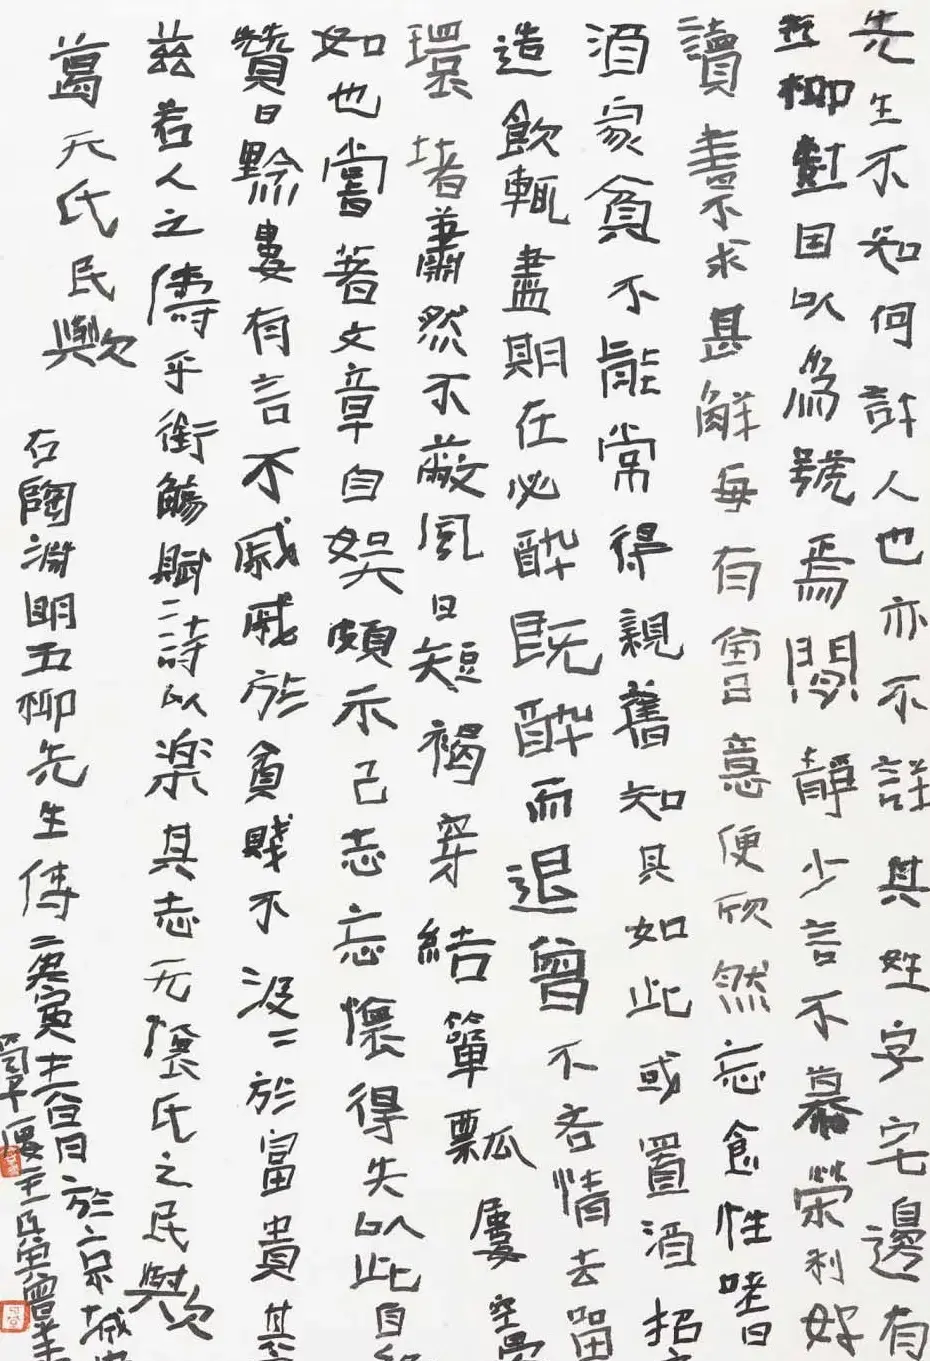 先生不知何許人也亦不詳其姓字宅邊有
五柳樹因以為號焉閑靜少言不慕榮利好
讀書不求甚解每有會意便欣然忘食性嗜
酒家貧不能常得親舊知其如此或置酒招
造飲輒盡期在必醉既醉而退曾不吝情去留
環堵蕭然不蔽風日短褐穿結簞瓢屢空晏
如也嘗著文章自娛頗示己志忘懷得失以此自終
贊曰黔婁有言不戚戚於貧賤不汲〻於富貴其
茲若人之儔乎銜觴賦詩以樂其志无懷氏之民歟
葛天氏民歟
右陶淵明五柳先生傳庚寅日於京城